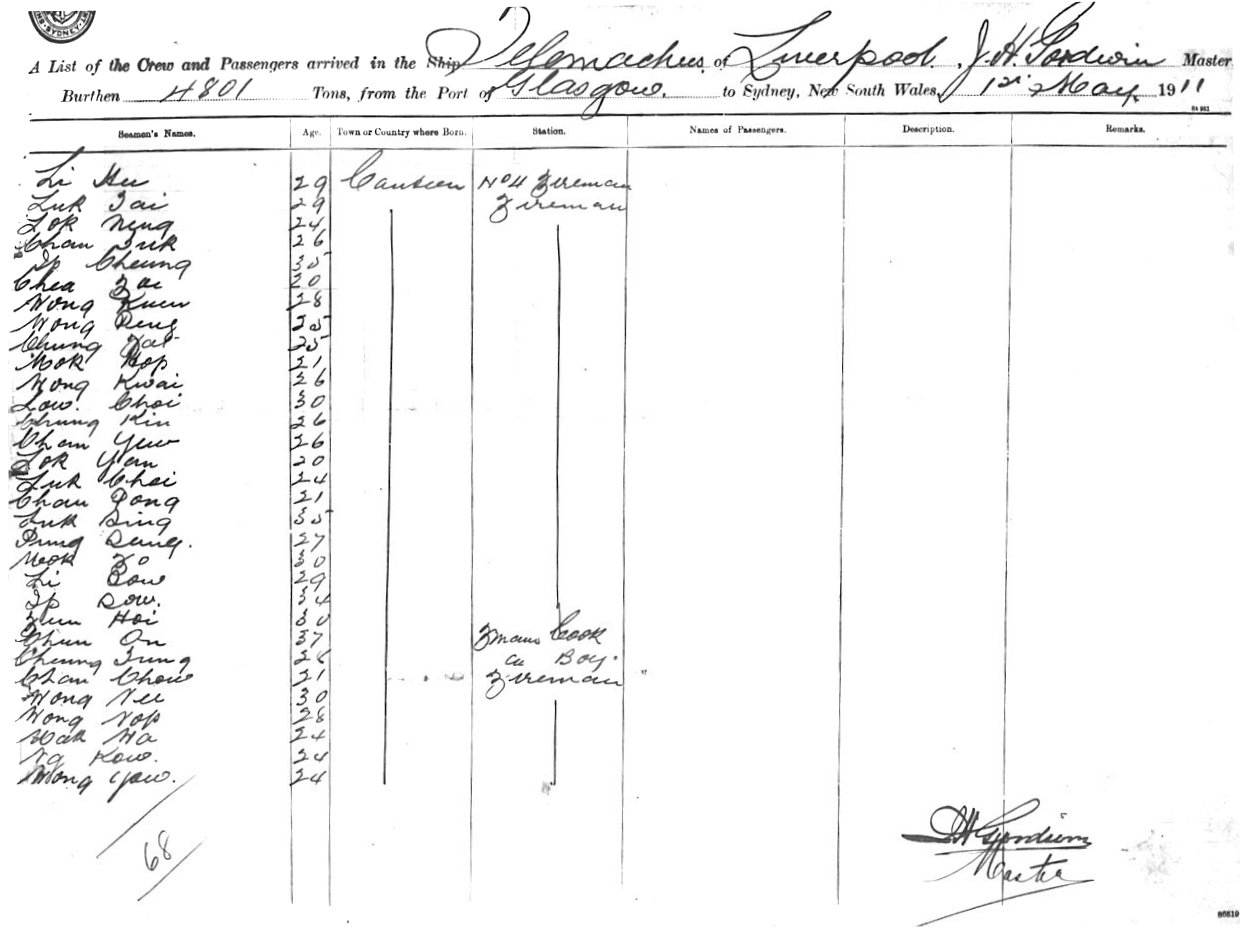 SYDNEY
A List of the Crew and Passengers arrived in the Ship Telemachus of Liverpool. J. H. Goodwin Master
Burthen 4801 Tons, from the Port of Glasgow. to Sydney, New South Wales, 1st May 1911
Seamen's Names. Age. Town or Country where Born. Station. Names of Passengers. Description. Remarks.
Li 29 No 4 Fireman
Luk Tai 29 Fireman
Lok Ning 24
Chan Luk 26
Ip Cheung 35
20
Wong Kuen 28
Wong 25
Chung 25
Mok Hop 21
Wong Kwai 26
Low. Choi 30
Chung Kin 26
Chan Yuw 26
Lok Yan 20
Luk Choi 24
Chan 21
Luk Sing 35
27
Mok Fo 30
Li 29
Ip Sow. 34
Hoi 30
Chun On 37 Fmans Cook
Cheung Tung Boy.
Chan Chow 21 Fireman
Wong 30
Wong 28
Mak Wa 24
Ng Kow. 24
Wong Yow. 24
68
J H Goodwin
Master
86519